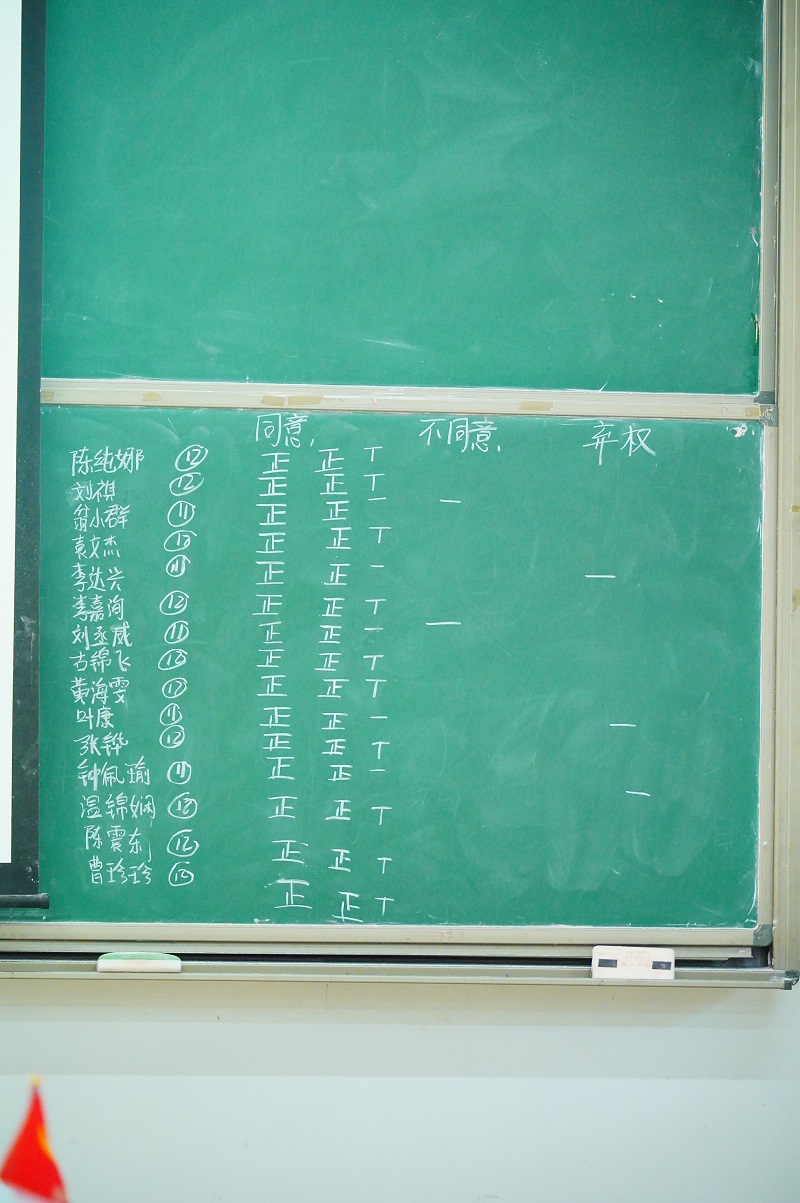 同意, 不同意, 弃权
陈纯娜 ⑫ 正 正 丅
刘祺 ⑫ 正 正 丅
翁小群 ⑪ 正 正 一 一
袁文杰 ⑫ 正 正 丅
李达兴 ⑪ 正 正 一 一
李嘉洵 ⑫ 正 正 丅
刘丞威 ⑪ 正 正 一 一
古锦飞 ⑫ 正 正 丅
黄海雯 ⑫ 正 正 丅
叶康 ⑪ 正 正 一 一
张铧 ⑫ 正 正 丅
钟佩瑜 ⑪ 正 正 一 一
温锦娴 ⑫ 正 正 丅
陈震东 ⑫ 正 正 丅
曹珍珍 ⑫ 正 正 丅